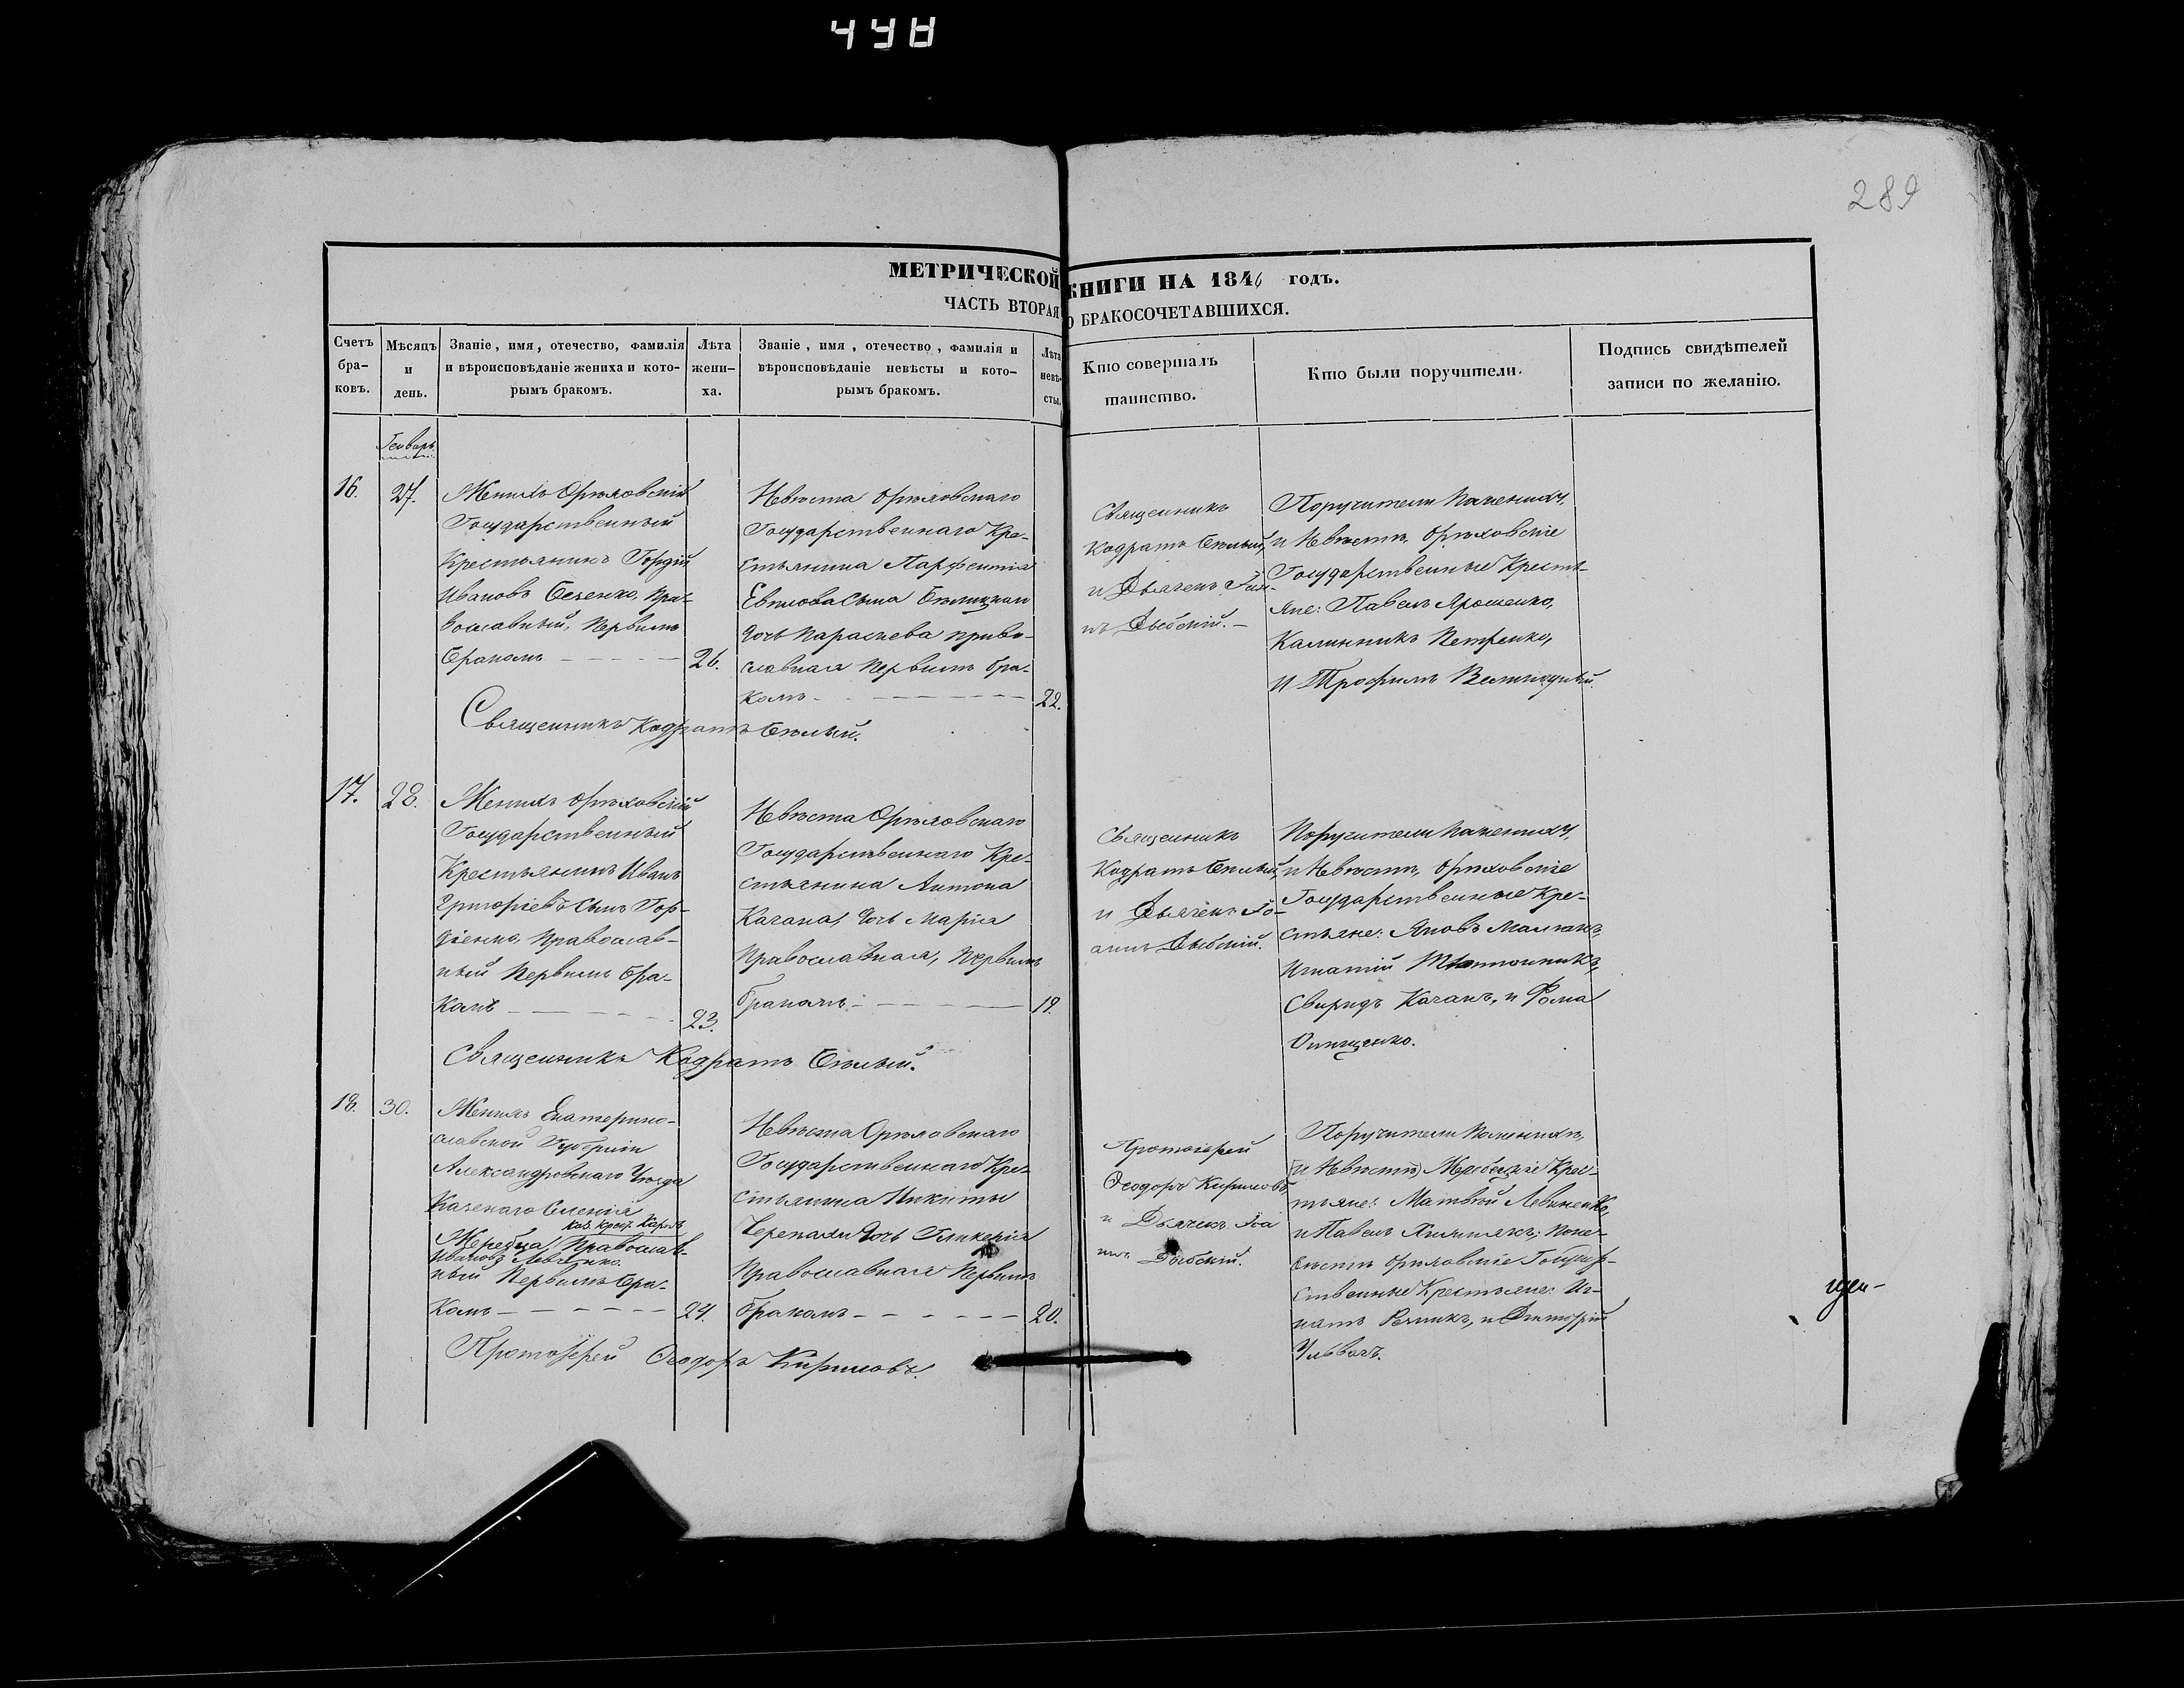 498
289
МЕТРИЧЕСКОЙ КНИГИ НА 1846 годъ.
ЧАСТЬ ВТОРАЯ О БРАКОСОЧЕТАВШИХСЯ.
Счетъ бра-ковъ.
Мѣсяцъ и день.
Званіе, имя, отечество, фамилія и вѣроисповѣданіе жениха и кото-рымъ бракомъ.
Лѣта жени-ха.
Званіе, имя, отечество, фамилія и вѣроисповѣданіе невѣсты и кото-рымъ бракомъ.
Лѣта невѣ-сты.
Кто совершалъ таинство.
Кто были поручители.
Подпись свидѣтелей записи по желанію.
Генварь
16.
27.
Женихъ Орѣховскій
Государственный
Крестьянинъ Гордій
Ивановъ Пра-
вославный, Первымъ
бракомъ
26.
Невѣста Орѣховскаго
Государственнаго Кре-
стьянина Парфентія
сына
дочь Параскева Право-
славная Первымъ бра-
комъ
22.
Священникъ
Кодратъ Бѣлый,
и Дьячекъ Іоан-
нъ Дыбскій.
Поручители по женихѣ,
и Невѣстѣ, Орѣховскіе
Государственные Кресть-
яне: Павелъ Ярошенко,
Калинникъ Петренко,
и Трофимъ
Священникъ Кодратъ Бѣлый.
17.
28.
Женихъ Орѣховскій
Государственный
Крестьянинъ Иванъ
Григоріевъ сынъ Гор-
діенко, Православ-
ный Первымъ бра-
комъ
23.
Невѣста Орѣховскаго
Государственнаго Кре-
стьянина Антона
Качана, дочь Марія
Православная, Первымъ
бракомъ
19.
Священникъ
Кодратъ Бѣлый,
и Дьячекъ Іо-
аннъ Дыбскій.
Поручители по женихѣ,
и Невѣстѣ, Орѣховскіе
Государственные Кре-
стьяне: Яковъ
Игнатій
Свиридъ Качанъ, и Фома
Онищенко.
Священникъ Кодратъ Бѣлый.
18.
30.
Женихъ Екатерино-
славской Губерніи
Александровскаго Уѣзда
Казенаго Селенія
каз. крест. Карпъ
Жеребца Православ-
Ивановъ Левченко.
ный Первымъ бра-
комъ
24.
Невѣста Орѣховскаго
Государственнаго Кре-
стьянина Никиты
дочь Гликерія
Православная Первымъ
бракомъ
20.
Протоіерей
Ѳеодоръ Кириловъ,
и Дьячекъ Іоа
ннъ Дыбскій.
Поручители по женихѣ,
и Невѣстѣ, Жеребецкіе Крес-
тьяне: Матвѣй
и Павелъ по не-
вѣстѣ Орѣховскіе Государ-
ственные Крестьяне: Иг-
натъ Резникъ, и Дмитрій
Протоіерей Ѳеодоръ Кириловъ.